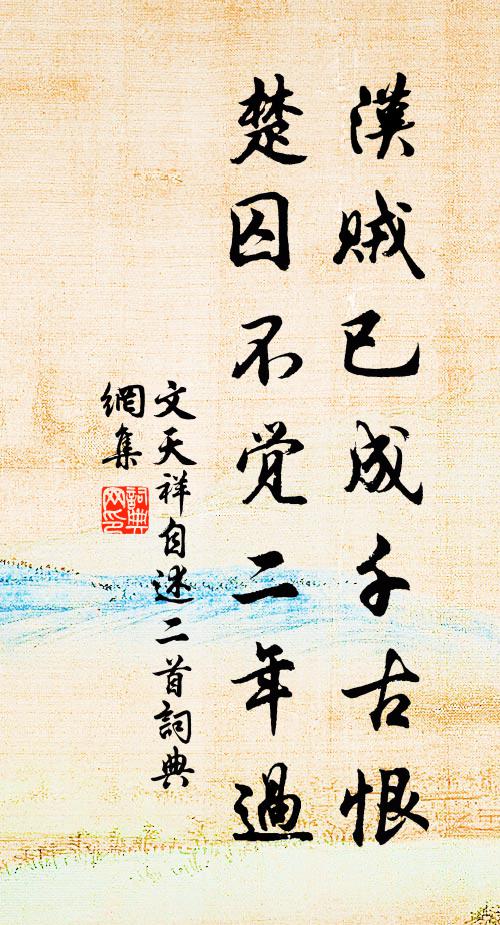 漢賊已成千古恨
楚囚不覚二年過
文天祥自述二首詞典
網集
詞典
网印